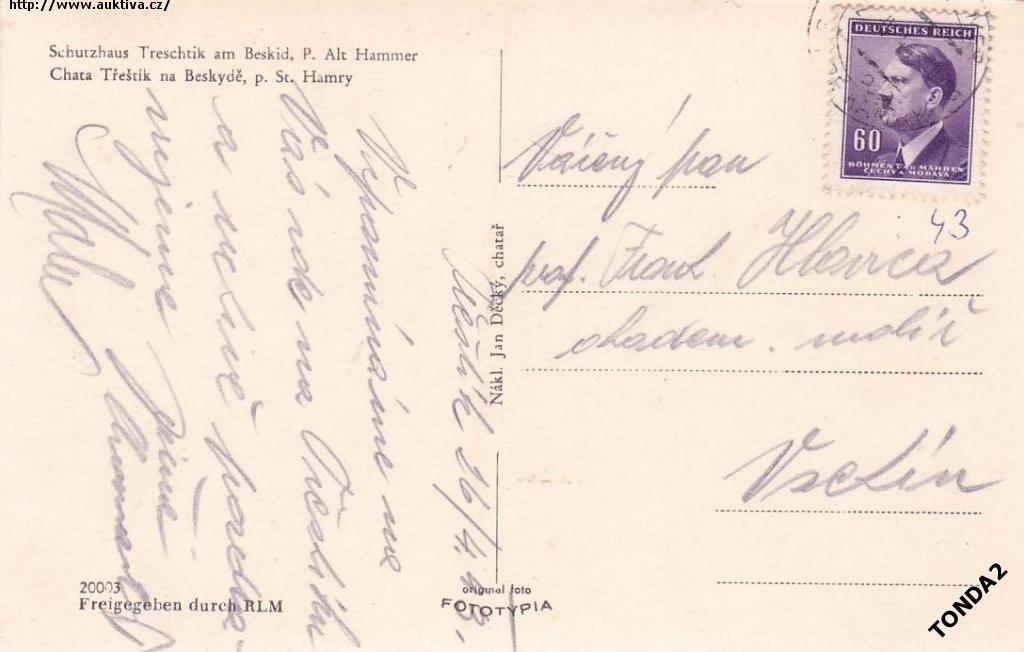 http://www.auktiva.cz/
Schutzhaus Treschtik am Beskid, P. Alt Hammer
Chata Třeštík na Beskydě, p. St. Hamry
DEUTSCHES REICH
60
BÖHMEN U. MÄHREN
ČECHY A MORAVA
43
Vážený pan
prof. Frant. Hlavica
akadem. malíř
Vsetín
Nákl. Jan Děcký, chatař
Třeštík 26/4.43.
Vzpomínáme na
Vás zde na Třeštíku
a srdečně pozdra-
vujeme
20003
Freigegeben durch RLM
original foto
FOTOTYPIA
TONDA2